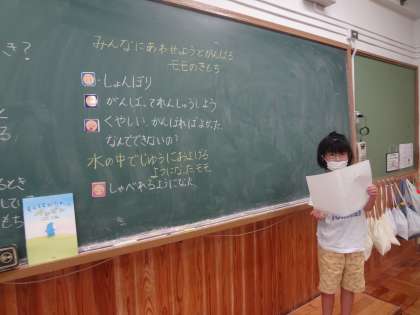 き?
みんなにあわせようとがんばる
モモのきもち
しょんぼり
がんばってれんしゅうしよう
くやしい がんばればよかった
なんでできないの?
水の中でじゆうにおよげる
ようになったモモ
しゃべれるようになった
るとき
して
もち